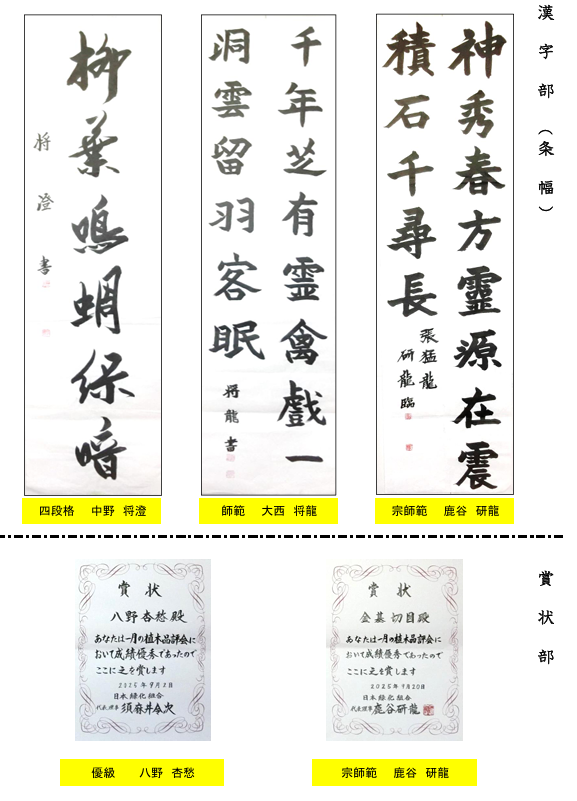 漢字部（条幅）
神秀春方靈源在震
積石千尋長
張猛龍
研龍臨
宗師範 鹿谷 研龍
千年芝有霊禽戯一
洞雲留羽客眠
将龍書
師範 大西 将龍
柳葉鳴蜩緑暗
将澄書
四段格 中野 将澄
賞状部
賞状
金基切目殿
あなたは一月の植木品評会に
おいて成績優秀であったので
ここに之を賞します
2025年9月20日
日本緑化組合
代表理事 鹿谷研龍
宗師範 鹿谷 研龍
賞状
八野杏愁殿
あなたは一月の植木品評会に
おいて成績優秀であったので
ここに之を賞します
日本緑化組合
代表理事
優級 八野 杏愁